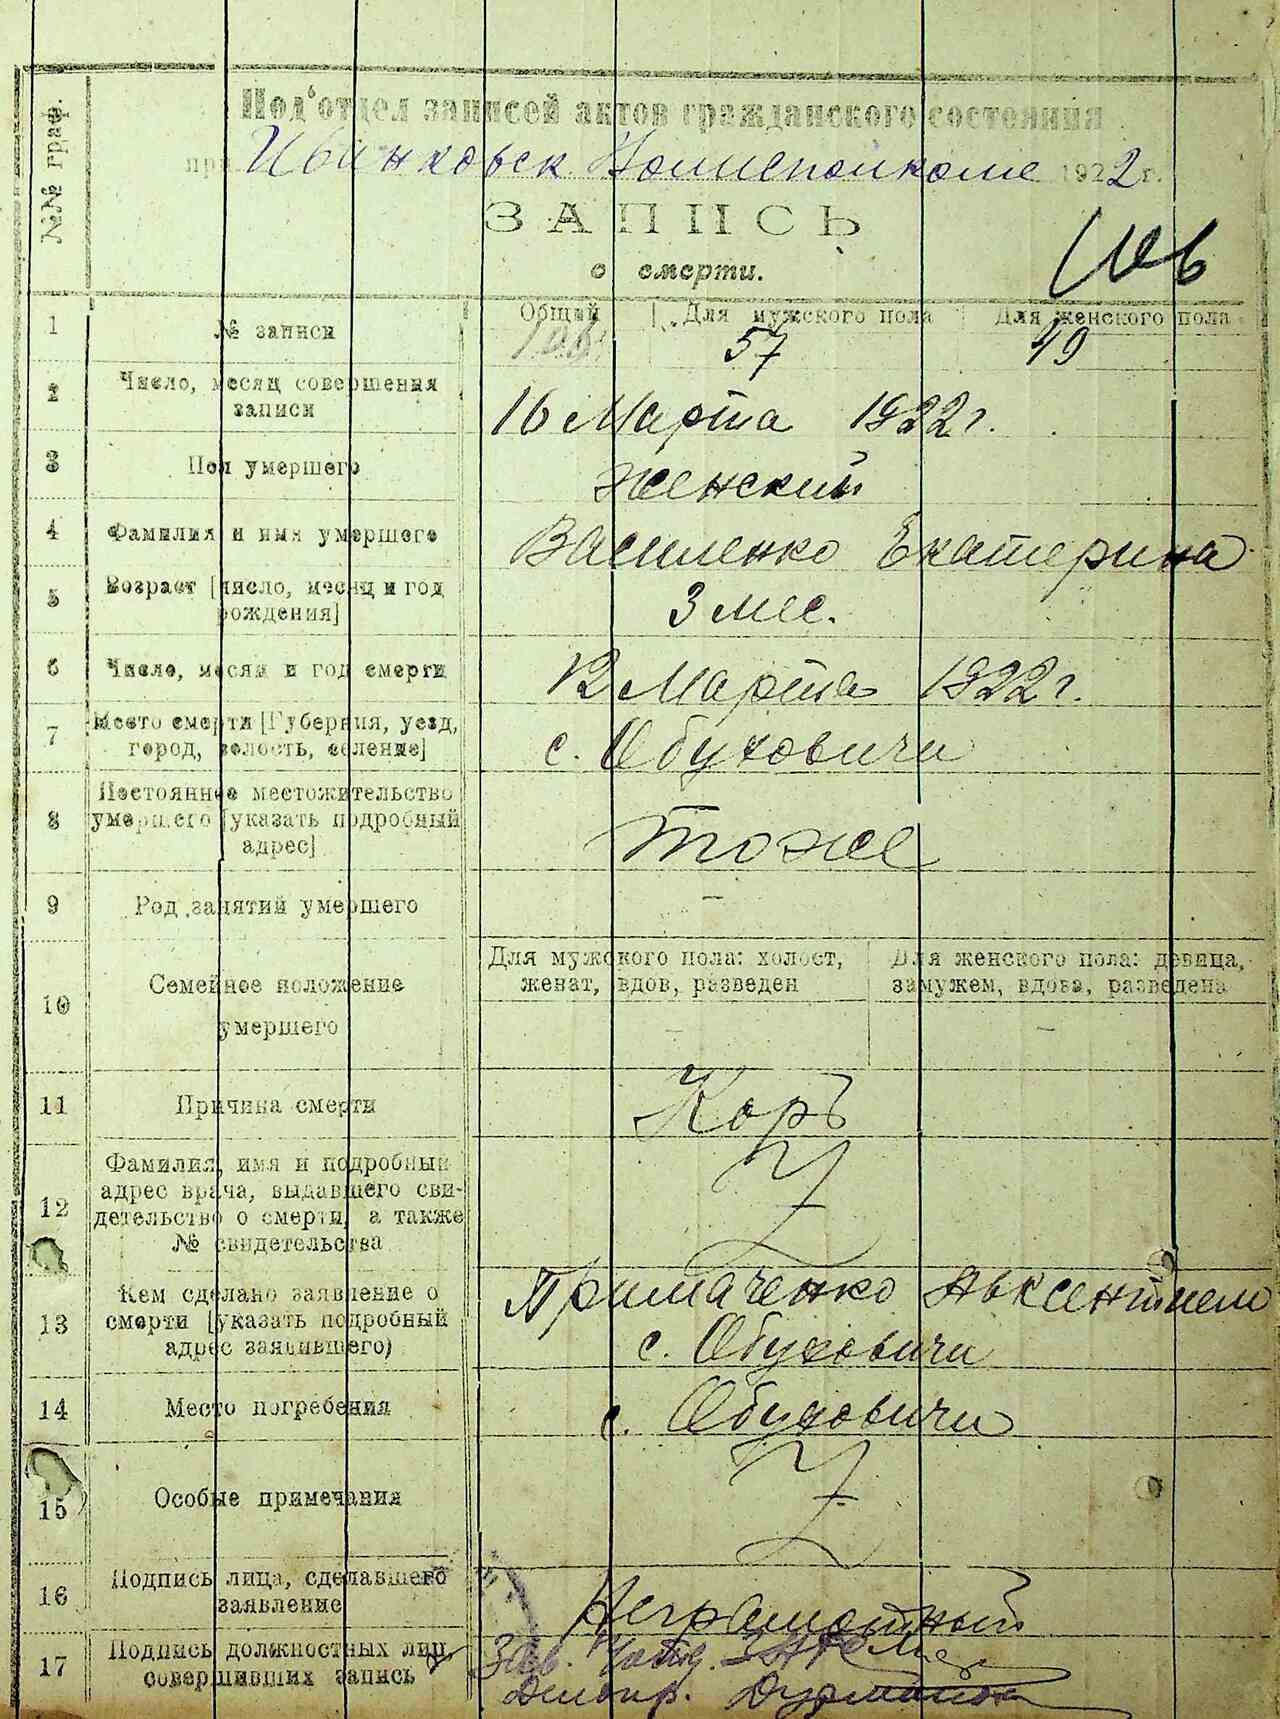 №№ граф.
Под'отдел записей актов гражданского состояния
при Иванковск. Волисполкоме 1922 г.
ЗАПИСЬ
о смерти.
106
1 № записи Общий Для мужского пола Для женского пола
106 57 49
2 Число, месяц совершения
записи
16 Марта 1922 г.
3 Пол умершего Женский
4 Фамилия и имя умершего Василенко Екатерина
5 Возраст [число, месяц и год
рождения]
3 мес.
6 Число, месяц и год смерти 12 Марта 1922 г.
7 Место смерти [Губерния, уезд,
город, волость, селение]
с. Обуховичи
8 Постоянное местожительство
умершего [указать подробный
адрес]
тоже
9 Род занятий умершего –
10 Семейное положение
умершего
Для мужского пола: холост,
женат, вдов, разведен
–
Для женского пола: девица,
замужем, вдова, разведена
–
11 Причина смерти Корь
12 Фамилия, имя и подробный
адрес врача, выдавшего сви-
детельство о смерти, а также
№ свидетельства
13 Кем сделано заявление о
смерти [указать подробный
адрес заявившего)
Примаченко Авксентием
с. Обуховичи
14 Место погребения с. Обуховичи
15 Особые примечания
16 Подпись лица, сделавшего
заявление
Неграмотный
17 Подпись должностных лиц,
совершивших запись
Зав. ЗАГС
Делопр.